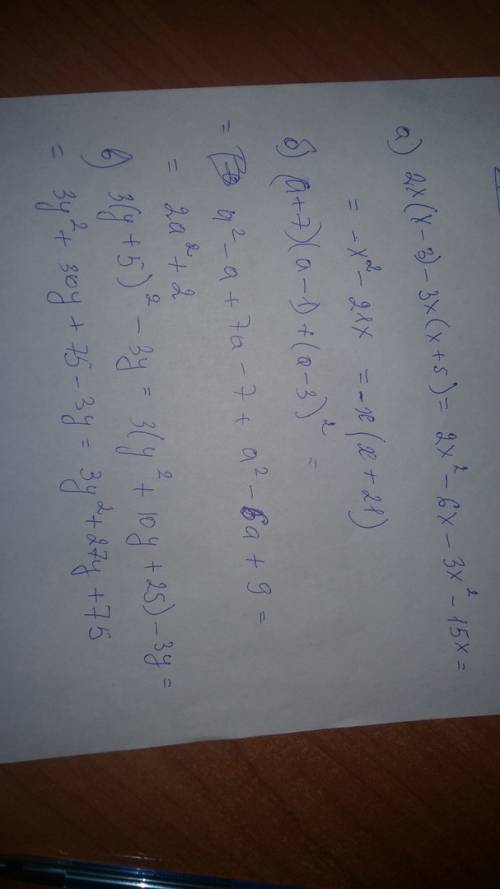 а) 2x(x-3)-3x(x+5)= 2x²-6x-3x²-15x=
= -x²-21x = -x(x+21)
б) (a+7)(a-1)+(a-3)² =
= a²-a+7a-7+a²-6a+9=
= 2a²+2
в) 3(y+5)²-3y=3(y²+10y+25)-3y=
= 3y²+30y+75-3y=3y²+27y+75